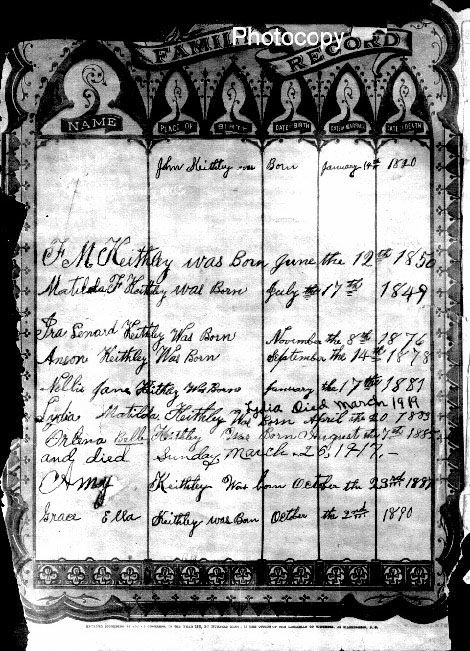 Photocopy
FAMILY RECORD
NAME PLACE OF BIRTH DATE OF BIRTH DATE OF MARRIAGE DATE OF DEATH
John Keithley was Born January 14th 1820
F M Keithley was Born June the 12th 1850
Matilda F Keithley was Born July the 17th 1849
Ira Lenard Keithley Was Born November the 8th 1876
Anson Keithley Was Born September the 14th 1878
Nellie Jane Keithley Was Born January the 17th 1881
Lydia Died March 1919
Lydia Matilda Keithley Was Born April the 20 1883
Orlena Bell Keithley Was Born August the 7th 1885
and died Sunday March 25, 1917.–
Amy Keithley Was born October the 23rd 1887
Grace Ella Keithley was Born October the 2nd 1890